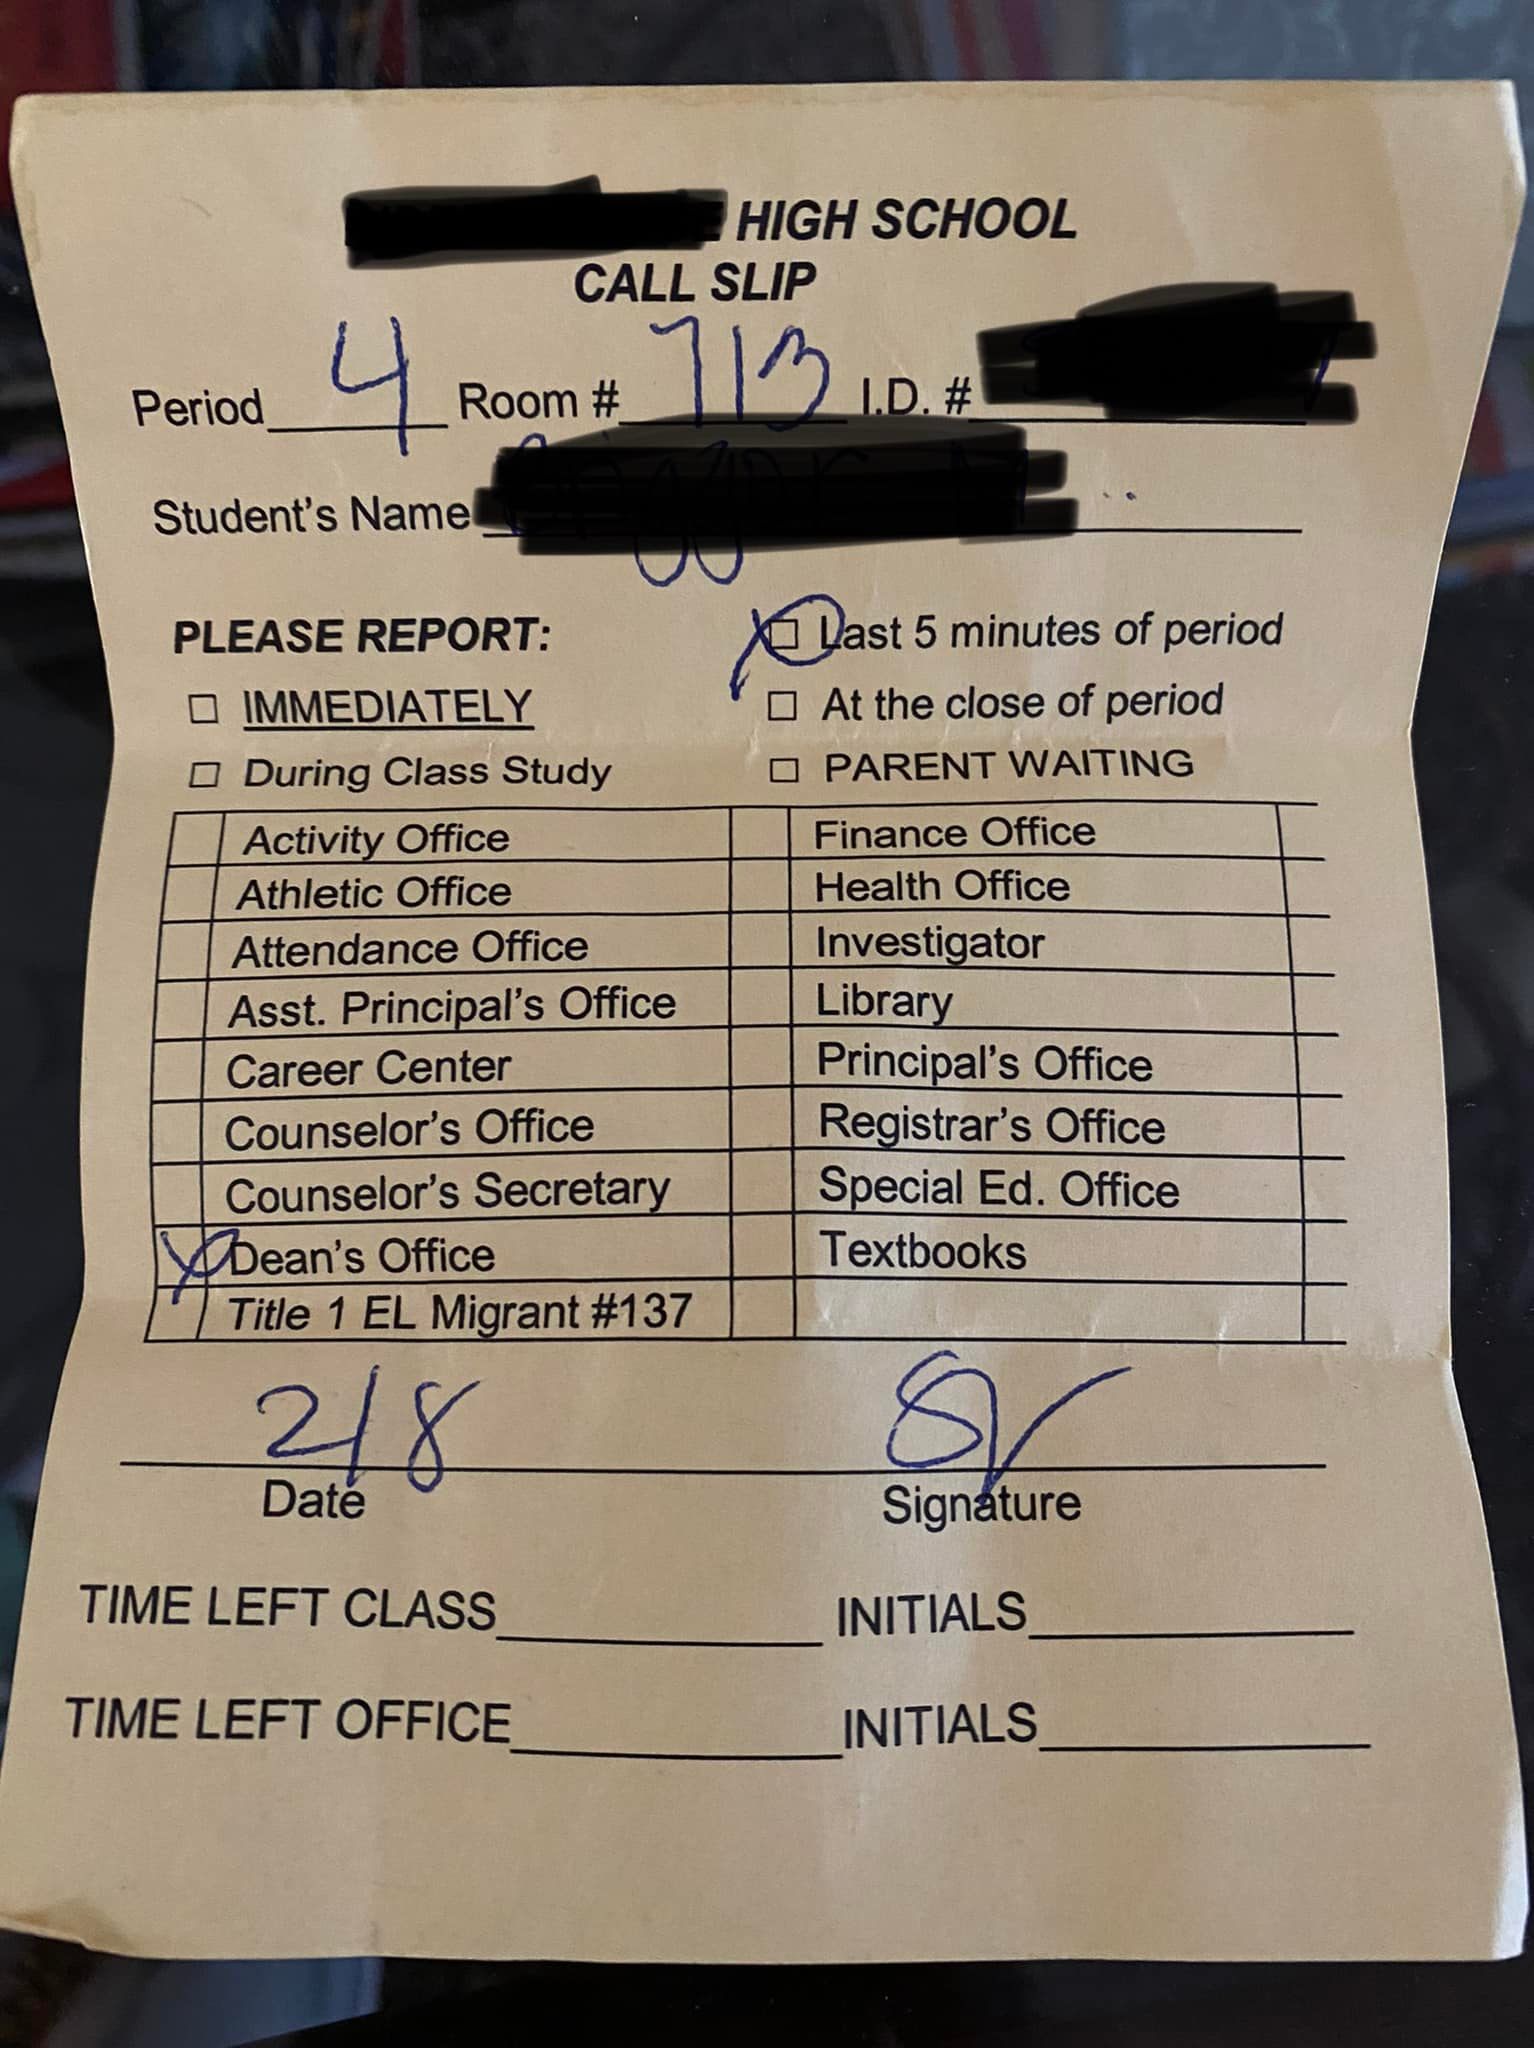 HIGH SCHOOL
CALL SLIP
Period 4 Room # 713 I.D. #
Student's Name
PLEASE REPORT:
Last 5 minutes of period
IMMEDIATELY
At the close of period
During Class Study
PARENT WAITING
Activity Office
Finance Office
Athletic Office
Health Office
Attendance Office
Investigator
Asst. Principal's Office
Library
Career Center
Principal's Office
Counselor's Office
Registrar's Office
Counselor's Secretary
Special Ed. Office
X Dean's Office
Textbooks
Title 1 EL Migrant #137
2/8
Date
Signature
TIME LEFT CLASS
INITIALS
TIME LEFT OFFICE
INITIALS